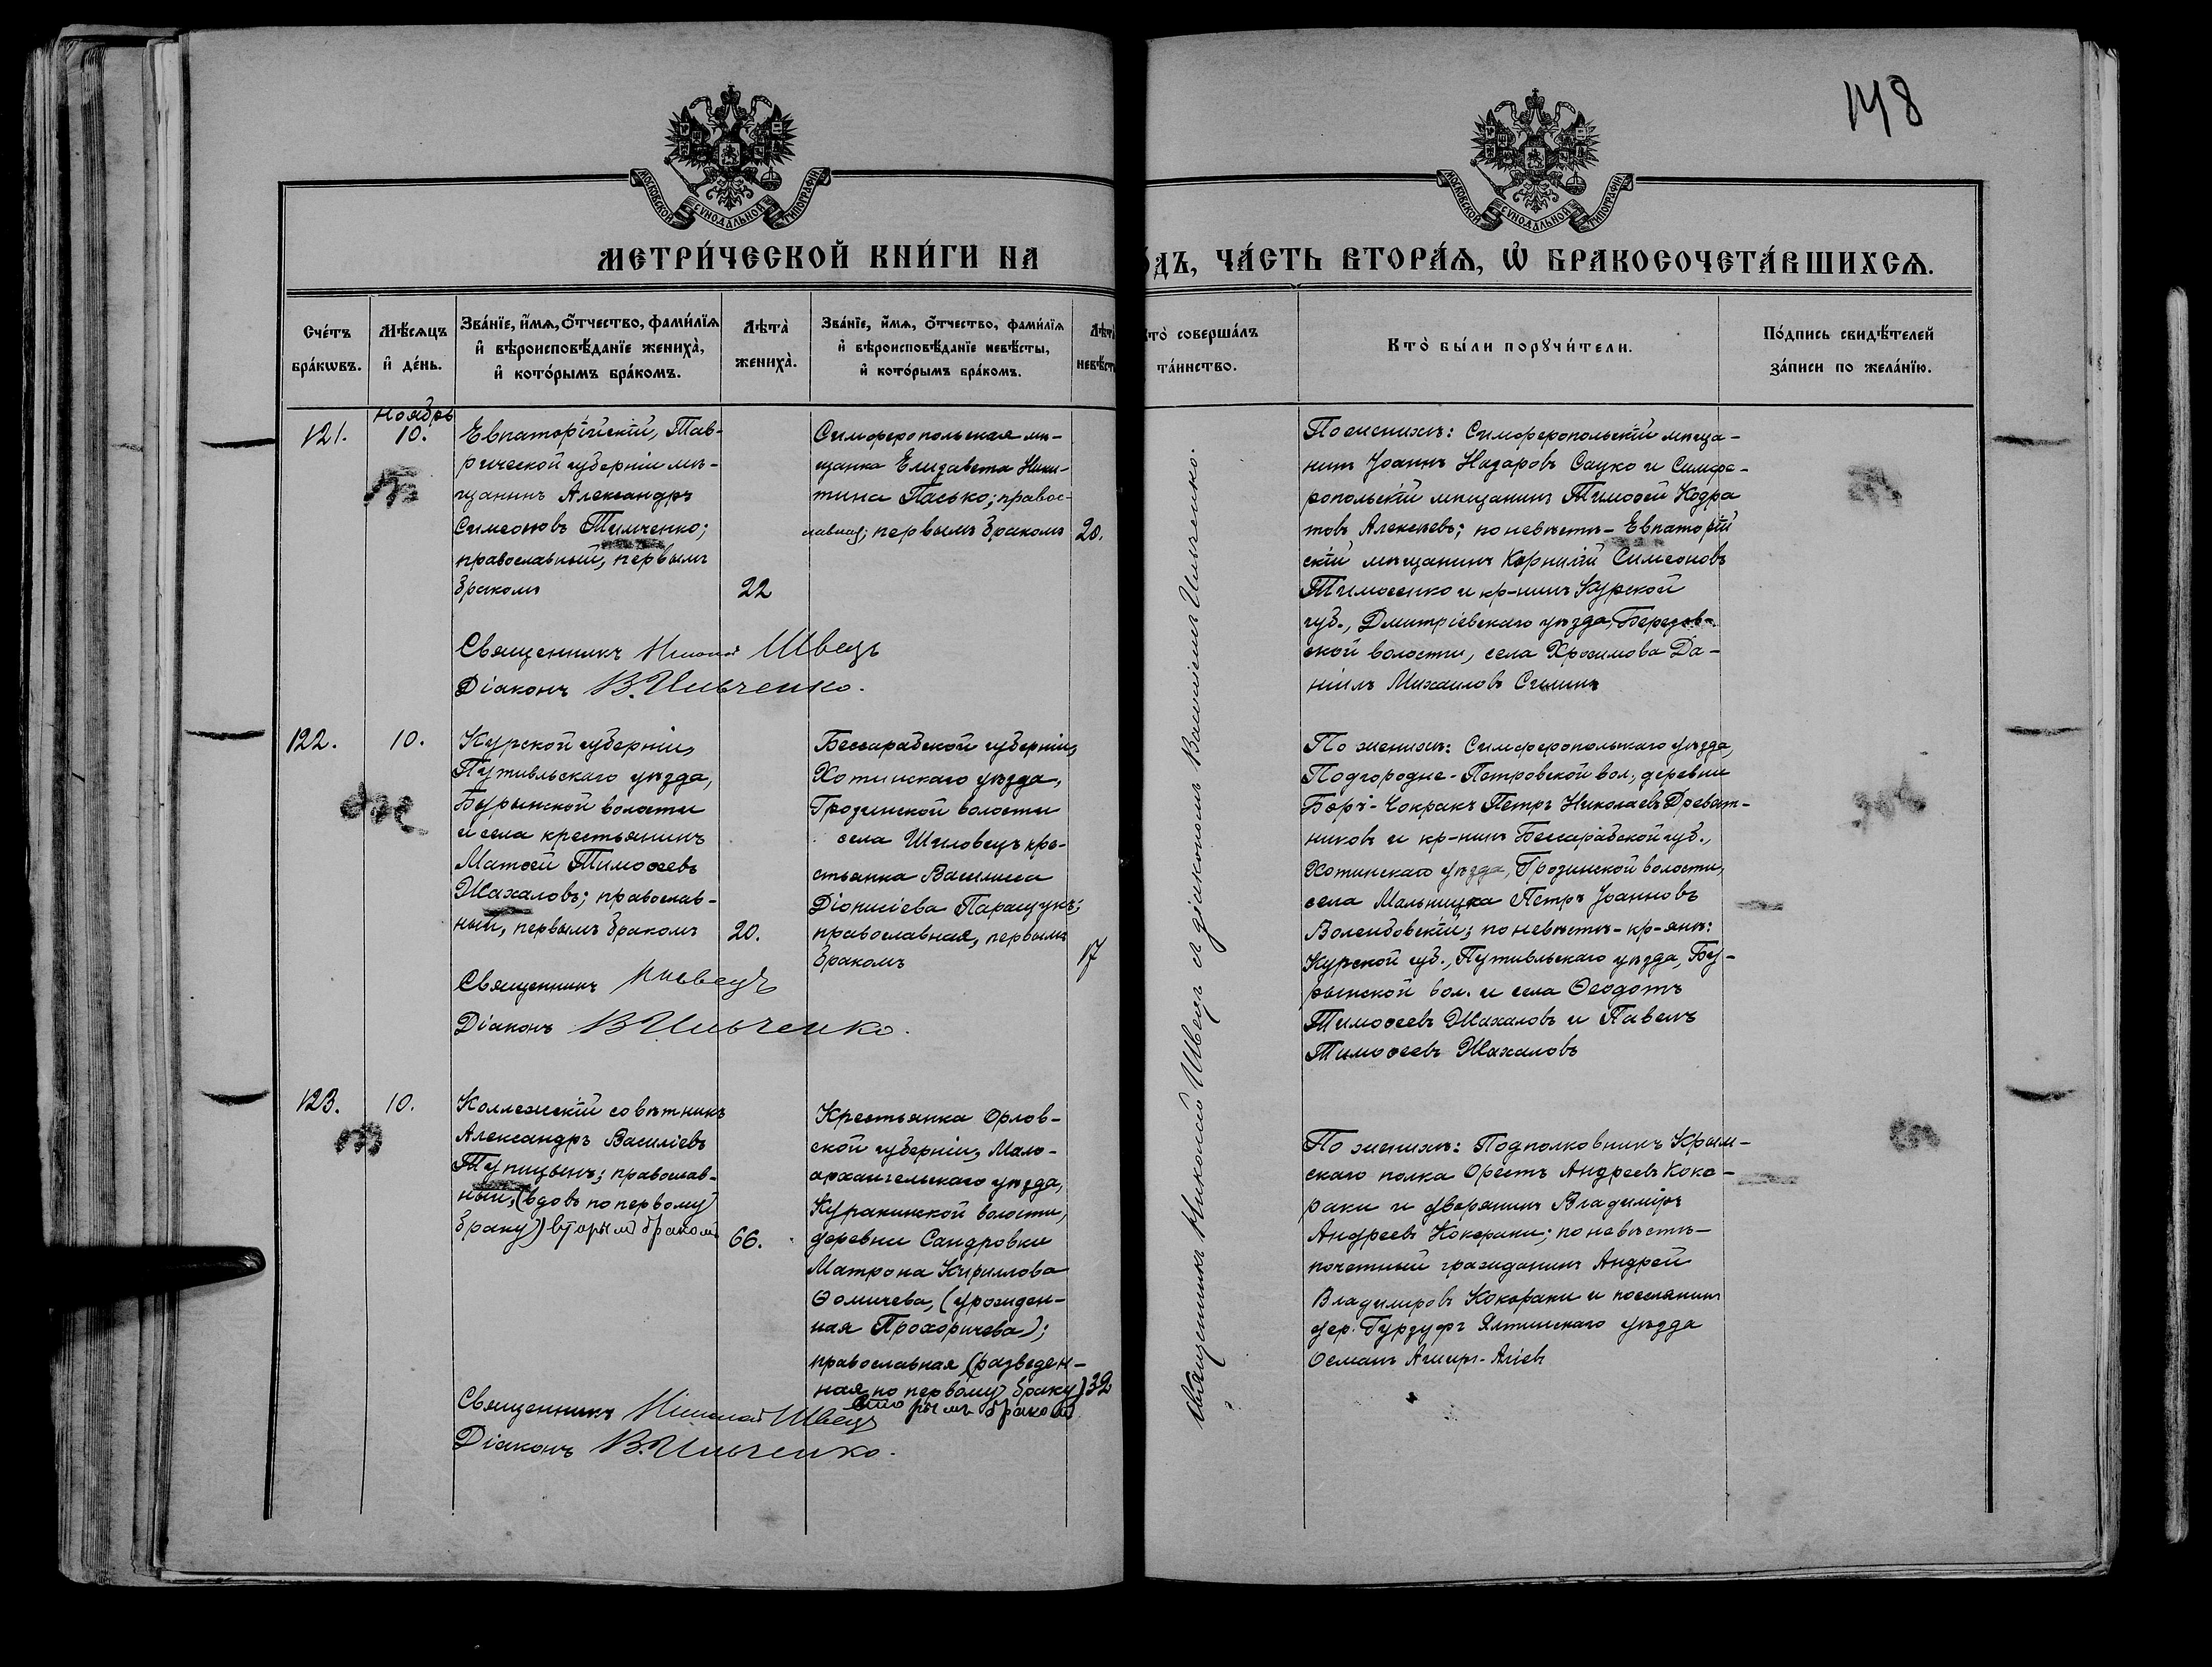 148
МОСКОВСКОЙ СѴНОДАЛЬНОЙ ТИПОГРАФІИ
МОСКОВСКОЙ СѴНОДАЛЬНОЙ ТИПОГРАФІИ
МЕТРИ́ЧЕСКОЙ КНИ́ГИ НА
ДЪ, ЧА́СТЬ ВТОРА́Ѧ, Ѽ БРАКОСОЧЕТА́ВШИХСѦ.
Сче́тъ
бра́кѡвъ.
Мѣ́сѧцъ
и҆ де́нь.
Зва́нїе, и҆́мѧ, ѻ҆́тчество, фами́лїѧ
и҆ вѣроисповѣ́данїе жениха̀,
и҆ кото́рымъ бра́комъ.
Лѣта̀
жениха̀.
Зва́нїе, и҆́мѧ, ѻ҆́тчество, фами́лїѧ
и҆ вѣроисповѣ́данїе невѣ́сты,
и҆ кото́рымъ бра́комъ.
Лѣт
невѣст
то̀ соверша́лъ
та́инство.
Кто̀ бы́ли порꙋчи́тели.
По́дпись свидѣ́телей
за́писи по жела́нїю.
Ноябрь
121.
10.
Евпаторійскій, Тав-
рической губерніи мѣ-
щанинъ Александръ
Симеоновъ Тимченко;
православный, первымъ
бракомъ
22
Священникъ Николай Швецъ
Діаконъ В. Ильченко.
Симферопольская мѣ-
щанка Елизавета Ники-
тина Пасько; правос-
лавная; первымъ бракомъ
20.
По женихѣ: Симферопольскій мѣща-
нинъ Іоаннъ Назаровъ Сауко и Симфе-
ропольскій мѣщанинъ Тимоѳей Кодра
товъ Алексѣевъ; по невѣстѣ - Евпаторій
скій мѣщанинъ Корнилій Симеоновъ
Тимоѳенко и кр-нинъ Курской
губ., Дмитріевскаго уѣзда, Березов-
ской волости, села Да-
ніилъ Михаиловъ
122.
10.
Курской губерніи,
Путивльскаго уѣзда,
Бурынской волости
и села крестьянинъ
Матѳей Тимоѳеевъ
Жахаловъ; православ-
ный, первымъ бракомъ
20.
Священникъ Н Швецъ
Діаконъ В Ильченко.
Бессарабской губерніи,
Хотинскаго уѣзда,
Грозинской волости
села Шиловецъ кре-
стьянка Василиса
Діонисіева Паращукъ;
православная, первымъ
бракомъ
17
По женихѣ: Симферопольскаго уѣзда,
Подгородне-Петровской вол., деревни
Борч-Чокракъ Петръ Николаевъ Древет-
никовъ и кр-нинъ Бессарабской губ.,
Хотинскаго уѣзда, Грозинской волости,
села Малыницка Петръ Іоанновъ
по невѣстѣ - кр-яне:
Курской губ., Путивльскаго уѣзда, Бу-
рынской вол. и села Ѳеодотъ
Тимоѳеевъ Жахаловъ и Павелъ
Тимоѳеевъ Жахаловъ
123.
10.
Коллежскій совѣтникъ
Александръ Василіевъ
Тупицынъ; православ-
ный, (вдовъ по первому
браку) вторымъ бракомъ
66.
Священникъ Николай Швецъ
Діаконъ В. Ильченко.
Крестьянка Орлов-
ской губерніи, Мало-
архангельскаго уѣзда,
Куракинской волости,
деревни Сандровки
Матрона Кириллова
Ѳомичева, (урожден-
ная Прохоричева);
православная (разведен-
ная по первому браку)
вторымъ бракомъ
32
По женихѣ: Подполковникъ Крым-
скаго полка Орестъ Андреевъ Коко-
раки и дворянинъ Владиміръ
Андреевъ Кокораки; по невѣстѣ -
почетный гражданинъ Андрей
Владимировъ Кокораки и поселянинъ
дер. Гурзуфъ Ялтинскаго уѣзда
Османъ Аширъ-Аліевъ
Священникъ Николай Швецъ съ діакономъ Василіемъ Ильченко.